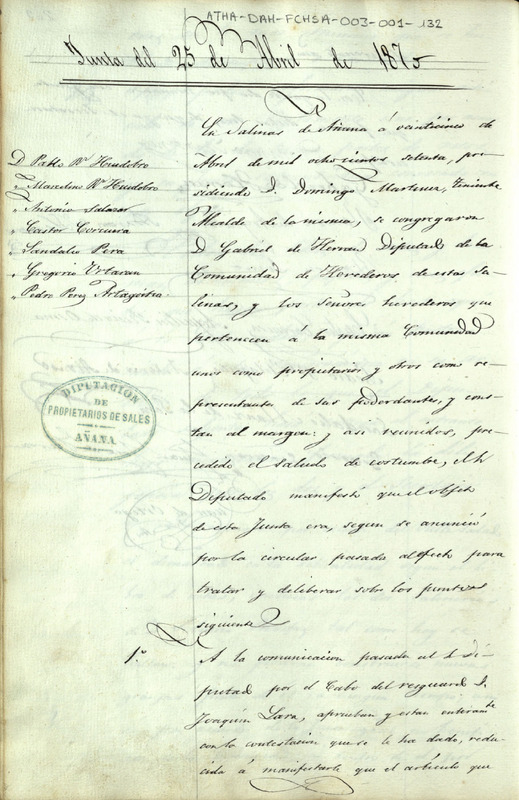 ATHA-DAH-FCHSA-003-001-132
Junta del 25 de Abril de 1870
En Salinas de Añana á veinticinco de
Abril de mil ochocientos setenta, pre-
sidiendo D. Domingo Martinez, Teniente
Alcalde de la misma, se congregaron
D Gabriel de Herran Diputado de la
Comunidad de Herederos de estas Sa-
linas, y los Señores herederos que
pertenecen á la misma Comunidad
unos como propietarios y otros como re-
presentantes de sus poderdantes, y cons-
tan al margen: y asi reunidos, pre-
cedido el saludo de costumbre, el Sr
Diputado manifestó que el objeto
de esta Junta era, segun se anunció
por la circular pasada al efecto para
tratar y deliberar sobre los puntos
siguientes
D Pablo Rz Huidobro
" Marcelino Rz Huidobro
" Antonio Salazar
" Castor Corcuera
" Sandalio Pera
" Gregorio Urtaran
" Pedro Perez
DIPUTACION
DE
PROPIETARIOS DE SALES
AÑANA
1º A la comunicacion pasada al Sr Di-
putado por el Cabo del resguardo D.
Joaquin Lara, aprueban y estan enteramte
con la contestacion que se le ha dado, redu-
cida á manifestarle que el articulo que